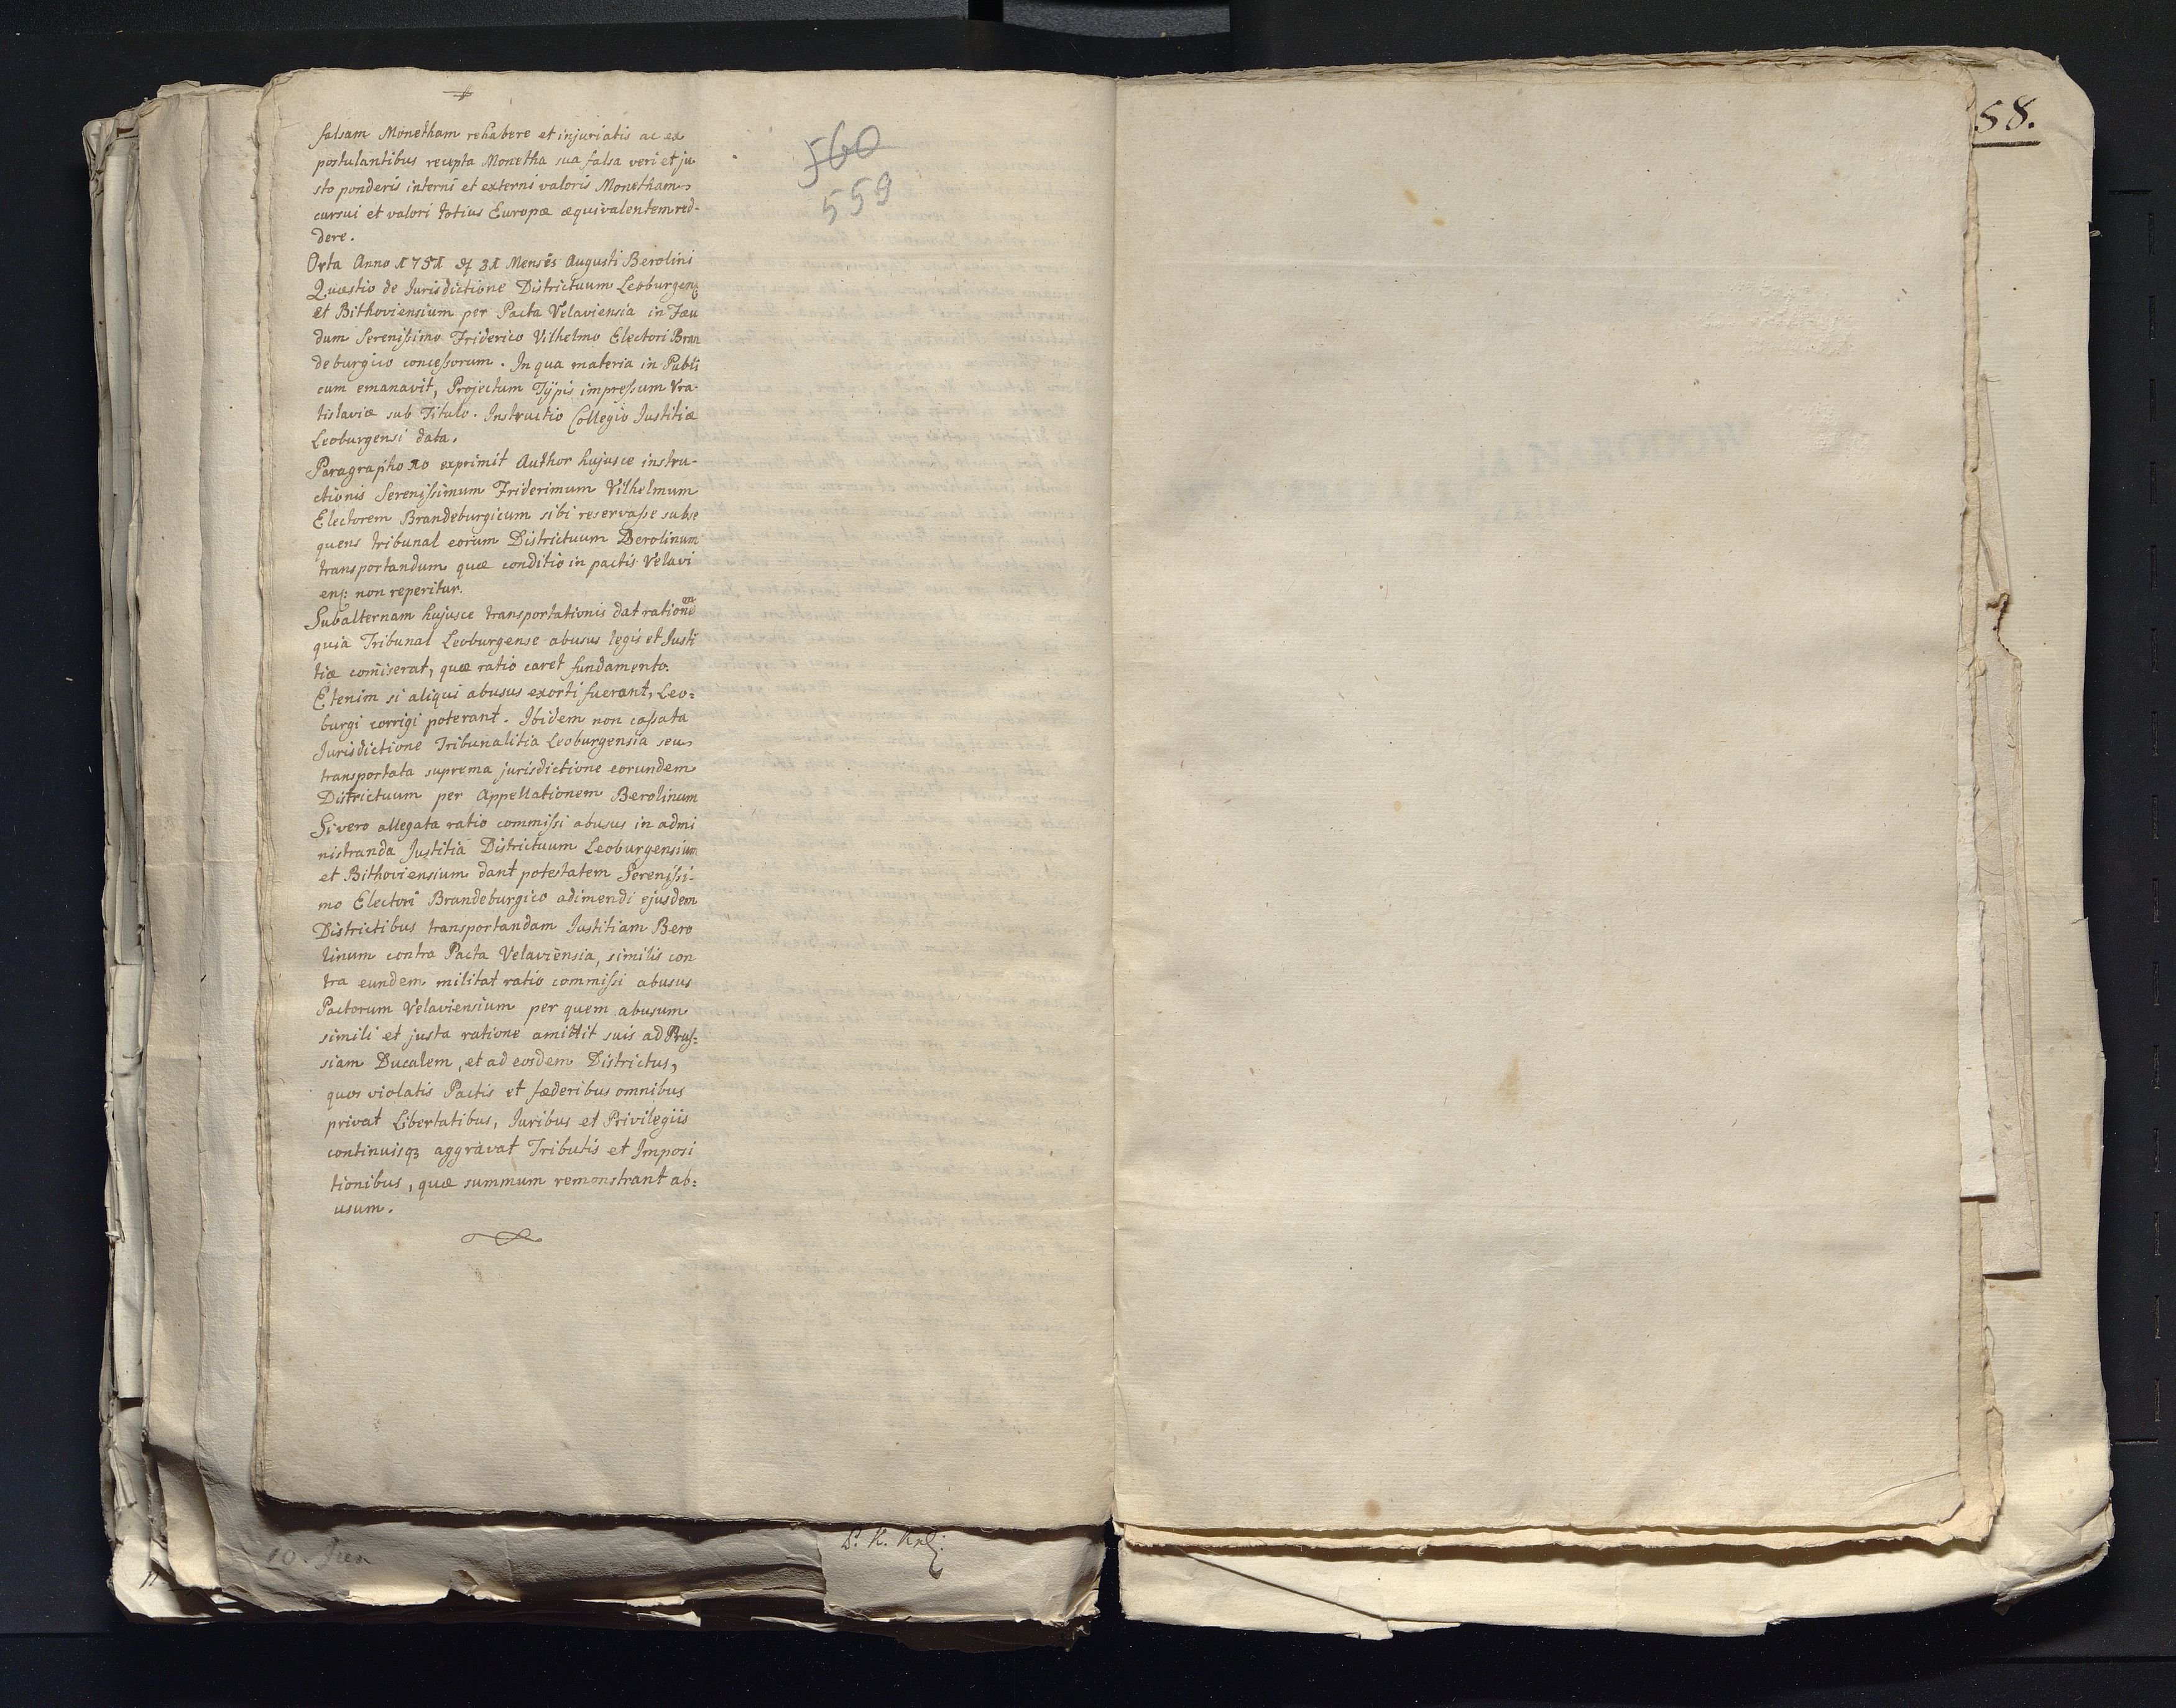 falsam Monetham rehabere et injuriatis ac ex
postulantibus recepta Monetha sua falsa veri et ju
sto ponderis interni et externi valoris Monetham
cursui et valori totius Europæ æquivalentem red-
dere.
Orta Anno 1751 31 Mensis Augusti Berolini
Quæstio de Jurisdictione Districtuum Leoburgen:
et Bithoviensium per Pacta Velaviensia in Fæu
dum Serenissimo Friderico Vilhelmo Electori Bran
deburgico concessorum. In qua materia in Publi
cum emanavit, Projectum Typis impressum Vra-
tislaviæ sub Titulo. Instructio Collegio Justitiæ
Leoburgensi data.
Paragrapho 10 exprimit Author hujusce instru-
ctionis Serenissimum Friderimum Vilhelmum
Electorem Brandeburgicum sibi reservasse subse
quens tribunal eorum Districtuum Berolinum
transportandum quæ conditio in pactis Velavi
ens: non reperitur.
Subalternam hujusce transportationis dat rationem
quia Tribunal Leoburgense abusus legis et Justi
tiæ com̃iserat, quæ ratio caret fundamento.
Etenim si aliqui abusus exorti fuerant, Leo=
burgi corrigi poterant. Ibidem non cassata
Jurisdictione Tribunalitia Leoburgensia seu
transportata suprema jurisdictione eorundem
Districtuum per Appellationem Berolinum
Si vero allegata ratio commissi abusus in admi
nistranda Justitia Districtuum Leoburgensium
et Bithoviensium dant potestatem Serenissi-
mo Electori Brandeburgico adimendi ejusdem
Districtibus transportandam Justitiam Bero
linum contra Pacta Velaviensia, similis con
tra eundem militat ratio commissi abusus
Pactorum Velaviensium per quem abusum
simili et justa ratione amittit suis ad Prus=
siam Ducalem, et ad eosdem Districtus,
quos violatis Pactis et fæderibus omnibus
privat Libertatibus, Juribus et Privilegiis
continuisq3 aggravat Tributis et Imposi
tionibus, quæ summum remonstrant ab=
usum.
560
559
58.